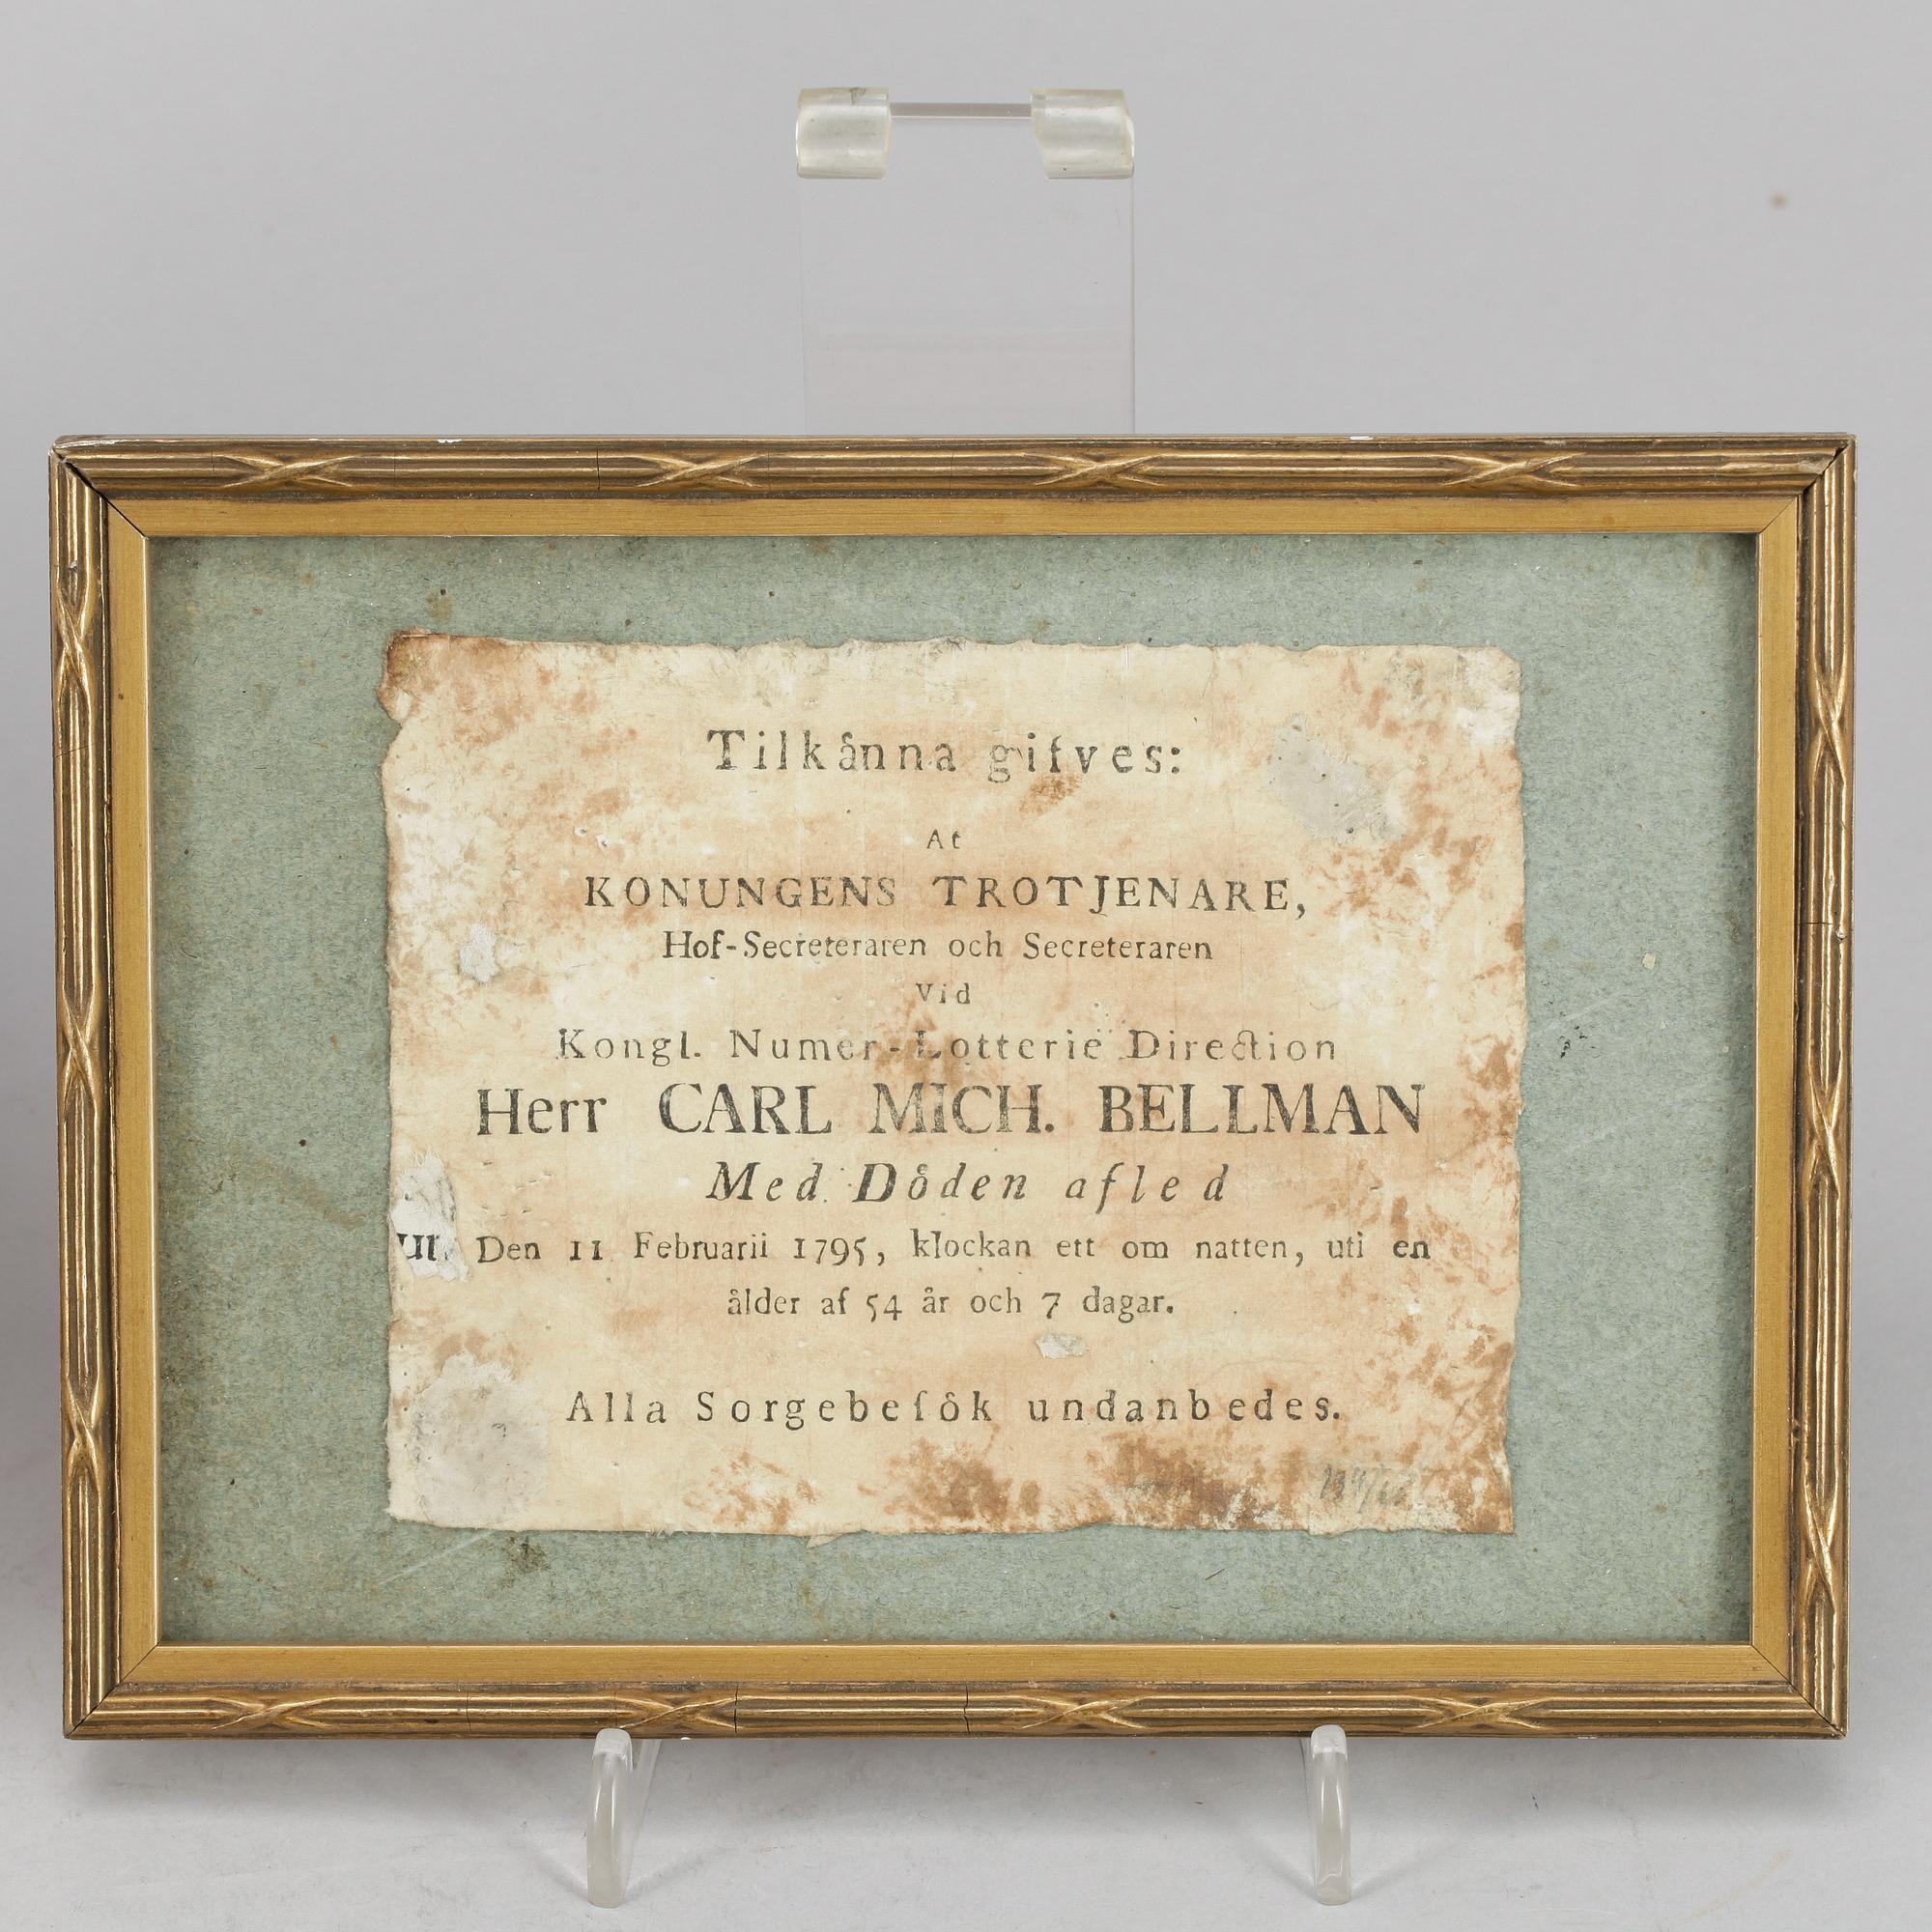 Tilkånna gifves:
At
KONUNGENS TROTJENARE,
Hof-Secreteraren och Secreteraren
Vid
Kongl. Numer-Lotterie Direction
Herr CARL MICH. BELLMAN
Med Dôden afled
Den 11 Februarii 1795, klockan ett om natten, uti en
ålder af 54 år och 7 dagar.
Alla Sorgebeſôk undanbedes.